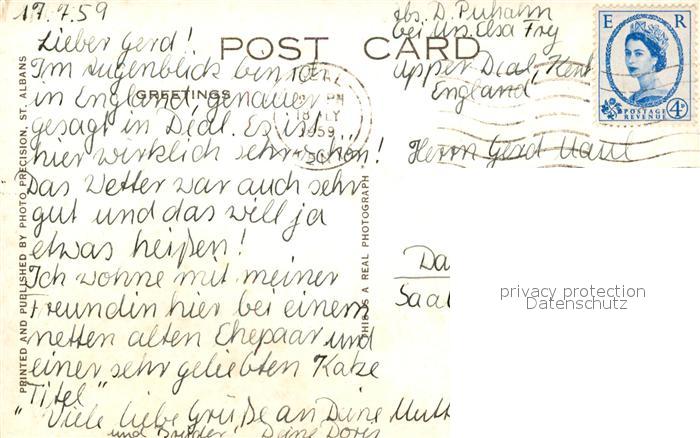 17.7.59
Lieber Gerd!
POST CARD
Im Augenblick bin ich
in England, genauer
GREETINGS
gesagt in Deal. Es ist
hier wirklich sehr schön!
Das Wetter war auch sehr
gut und das will ja
etwas heißen!
Ich wohne mit meiner
Freundin hier bei einem
netten alten Ehepaar und
einer sehr geliebten Katze
"Titel"
Viele liebe Grüße an Deine Mutt
und Brüder, Deine Doris
PRINTED AND PUBLISHED BY PHOTO PRECISION, ST. ALBANS
THIS IS A REAL PHOTOGRAPH
abs. D. Puhahn
bei Mrs. Elsa Fry
Upper Deal, Kent
England
Herrn Gerd
Da
Saal
E R
POSTAGE
REVENUE
4D
1959
privacy protection
Datenschutz